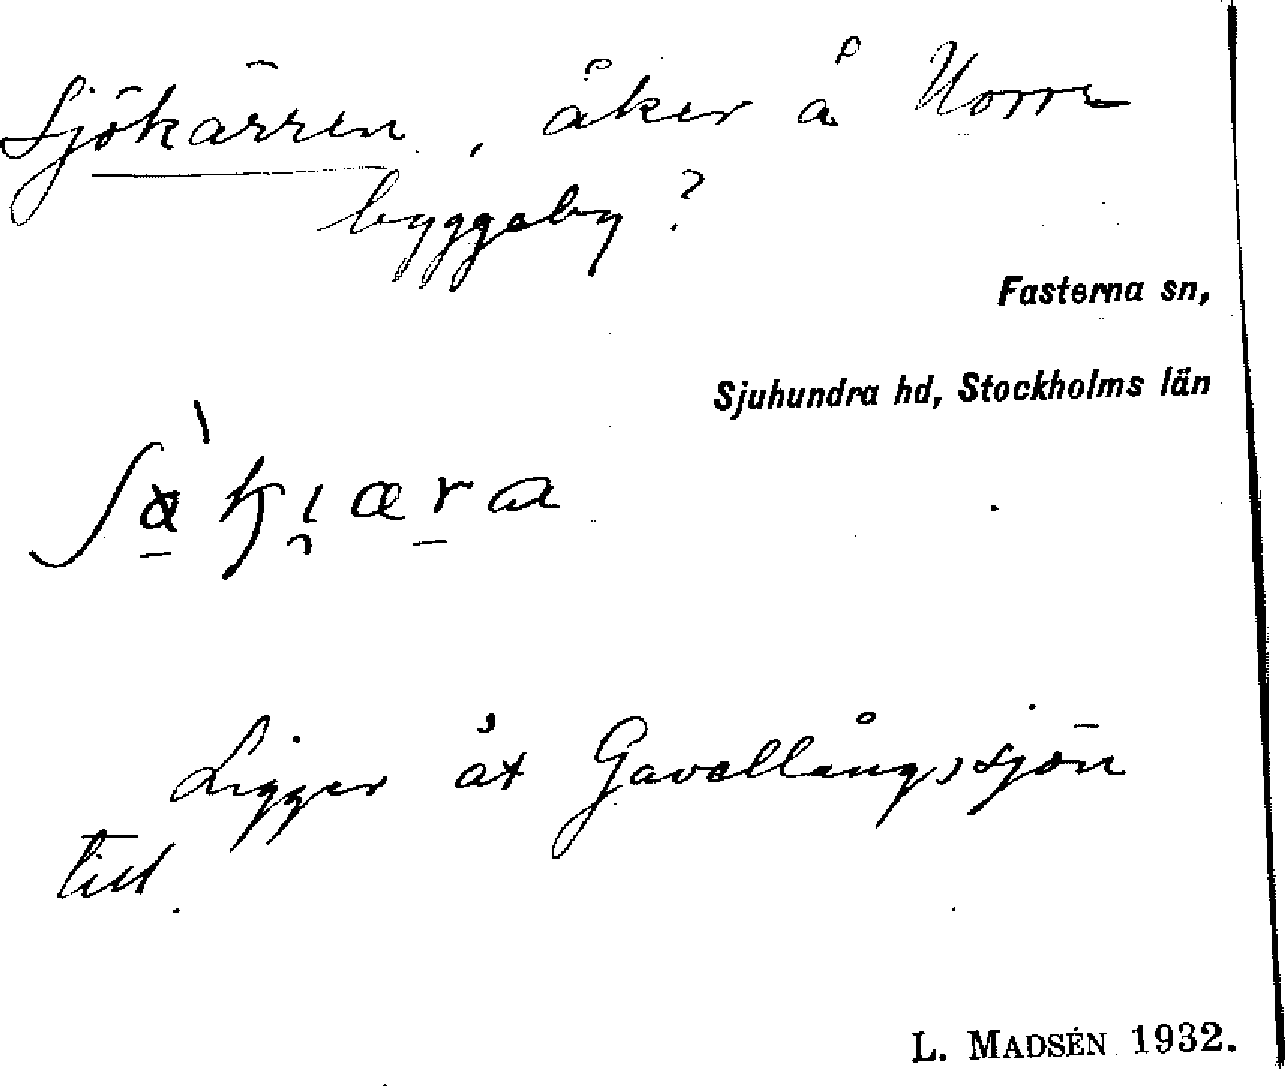 Sjökärren, åker å Norr
byggeby?
Fasterna sn,
Sjuhundra hd, Stockholms län
Ligger åt Gavellångssjön
till.
L. MADSÉN 1932.